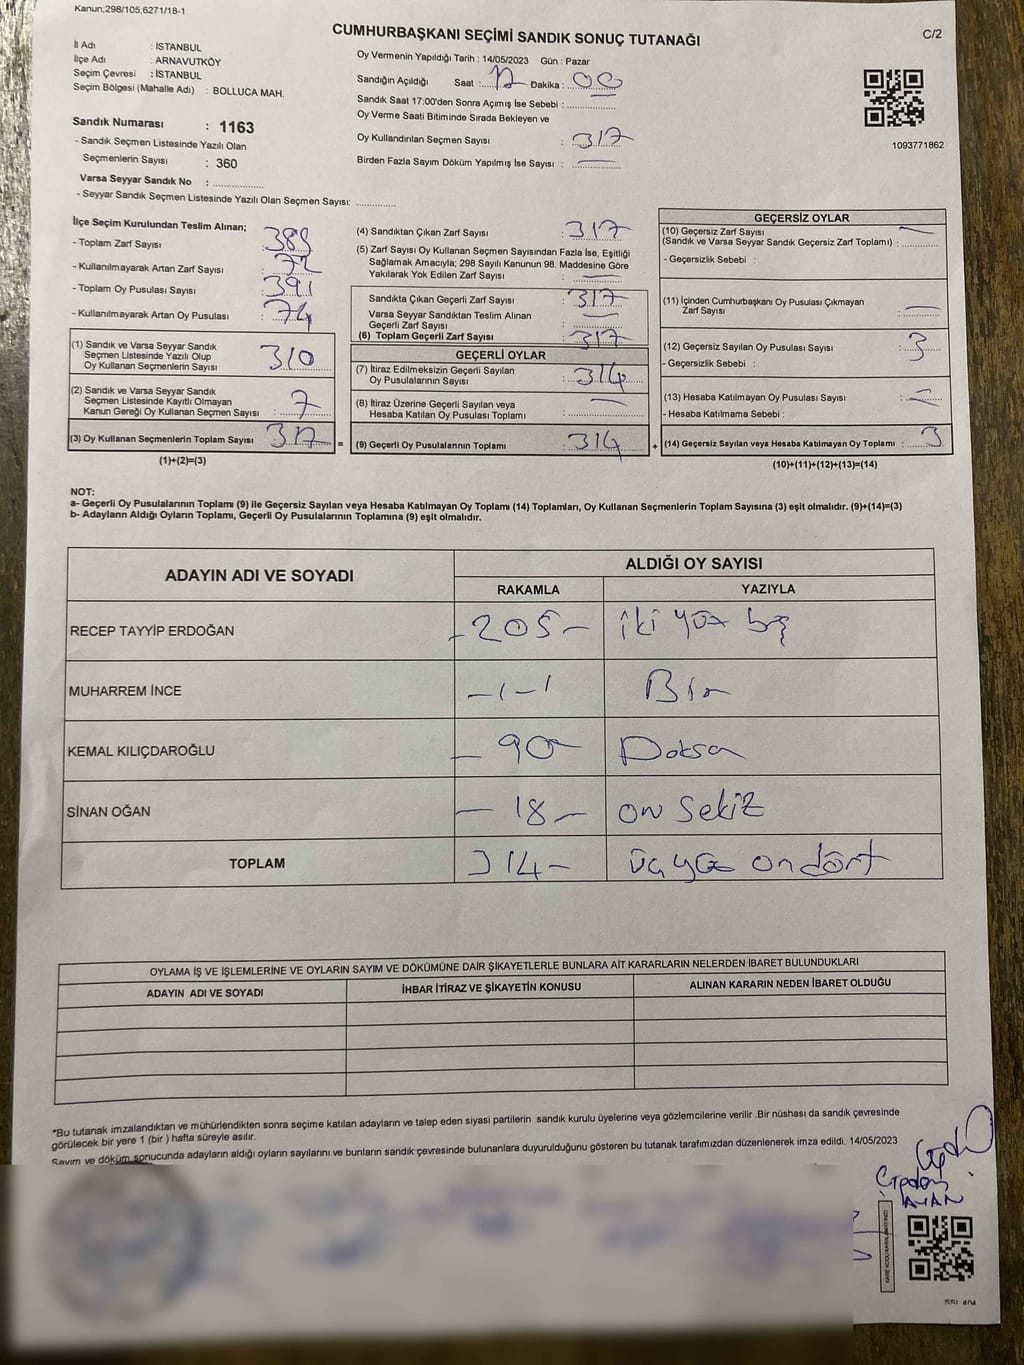 Kanun;298/105,6271/18-1
CUMHURBAŞKANI SEÇİMİ SANDIK SONUÇ TUTANAĞI
C/2
İl Adı : İSTANBUL
İlçe Adı : ARNAVUTKÖY
Seçim Çevresi : İSTANBUL
Seçim Bölgesi (Mahalle Adı) : BOLLUCA MAH.
Oy Vermenin Yapıldığı Tarih : 14/05/2023 Gün : Pazar
Sandığın Açıldığı Saat : 17 Dakika : 00
Sandık Saat 17:00'den Sonra Açımış İse Sebebi :
Oy Verme Saati Bitiminde Sırada Bekleyen ve
Oy Kullandırılan Seçmen Sayısı : 317
Birden Fazla Sayım Döküm Yapılmış İse Sayısı : —
1093771862
Sandık Numarası : 1163
- Sandık Seçmen Listesinde Yazılı Olan
Seçmenlerin Sayısı : 360
Varsa Seyyar Sandık No :
- Seyyar Sandık Seçmen Listesinde Yazılı Olan Seçmen Sayısı:
İlçe Seçim Kurulundan Teslim Alınan;
- Toplam Zarf Sayısı : 389
- Kullanılmayarak Artan Zarf Sayısı : 72
- Toplam Oy Pusulası Sayısı : 391
- Kullanılmayarak Artan Oy Pusulası : 74
(1) Sandık ve Varsa Seyyar Sandık
Seçmen Listesinde Yazılı Olup
Oy Kullanan Seçmenlerin Sayısı : 310
(2) Sandık ve Varsa Seyyar Sandık
Seçmen Listesinde Kayıtlı Olmayan
Kanun Gereği Oy Kullanan Seçmen Sayısı : 7
(3) Oy Kullanan Seçmenlerin Toplam Sayısı : 317 =
(1)+(2)=(3)
(4) Sandıktan Çıkan Zarf Sayısı : 317
(5) Zarf Sayısı Oy Kullanan Seçmen Sayısından Fazla İse, Eşitliği
Sağlamak Amacıyla; 298 Sayılı Kanunun 98. Maddesine Göre
Yakılarak Yok Edilen Zarf Sayısı : —
Sandıkta Çıkan Geçerli Zarf Sayısı : 317
Varsa Seyyar Sandıktan Teslim Alınan
Geçerli Zarf Sayısı : —
(6) Toplam Geçerli Zarf Sayısı : 317
GEÇERLİ OYLAR
(7) İtiraz Edilmeksizin Geçerli Sayılan
Oy Pusulalarının Sayısı : 314
(8) İtiraz Üzerine Geçerli Sayılan veya
Hesaba Katılan Oy Pusulası Toplamı : —
(9) Geçerli Oy Pusulalarının Toplamı : 314 +
GEÇERSİZ OYLAR
(10) Geçersiz Zarf Sayısı
(Sandık ve Varsa Seyyar Sandık Geçersiz Zarf Toplamı) : —
- Geçersizlik Sebebi :
(11) İçinden Cumhurbaşkanı Oy Pusulası Çıkmayan
Zarf Sayısı : —
(12) Geçersiz Sayılan Oy Pusulası Sayısı : 3
- Geçersizlik Sebebi :
(13) Hesaba Katılmayan Oy Pusulası Sayısı : —
- Hesaba Katılmama Sebebi :
(14) Geçersiz Sayılan veya Hesaba Katılmayan Oy Toplamı : 3
(10)+(11)+(12)+(13)=(14)
NOT:
a- Geçerli Oy Pusulalarının Toplamı (9) ile Geçersiz Sayılan veya Hesaba Katılmayan Oy Toplamı (14) Toplamları, Oy Kullanan Seçmenlerin Toplam Sayısına (3) eşit olmalıdır. (9)+(14)=(3)
b- Adayların Aldığı Oyların Toplamı, Geçerli Oy Pusulalarının Toplamına (9) eşit olmalıdır.
ADAYIN ADI VE SOYADI
ALDIĞI OY SAYISI
RAKAMLA YAZIYLA
RECEP TAYYİP ERDOĞAN -205- iki yüz beş
MUHARREM İNCE -1-1 Bir
KEMAL KILIÇDAROĞLU -90- Doksa
SİNAN OĞAN -18- on sekiz
TOPLAM 314- üç yüz on dört
OYLAMA İŞ VE İŞLEMLERİNE VE OYLARIN SAYIM VE DÖKÜMÜNE DAİR ŞİKAYETLERLE BUNLARA AİT KARARLARIN NELERDEN İBARET BULUNDUKLARI
ADAYIN ADI VE SOYADI İHBAR İTİRAZ VE ŞİKAYETİN KONUSU ALINAN KARARIN NEDEN İBARET OLDUĞU
*Bu tutanak imzalandıktan ve mühürlendikten sonra seçime katılan adayların ve talep eden siyasi partilerin sandık kurulu üyelerine veya gözlemcilerine verilir .Bir nüshası da sandık çevresinde
görülecek bir yere 1 (bir ) hafta süreyle asılır.
Sayım ve döküm sonucunda adayların aldığı oyların sayılarını ve bunların sandık çevresinde bulunanlara duyurulduğunu gösteren bu tutanak tarafımızdan düzenlenerek imza edildi. 14/05/2023
AYAN